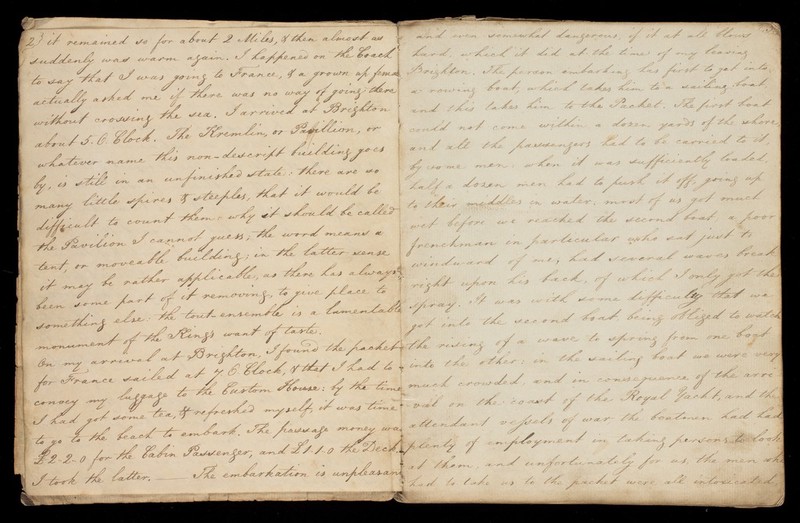 2) it remained so for about 2 Miles, & then almost as
suddenly was warm again; I happened on the Coach
to say that I was going to France, & a grown up female
actually asked me if there was no way of going there
without crossing the sea. I arrived at Brighton
about 5. O. Clock. The Kremlin, or Pavillion, or
whatever name this non-descript building goes
by, is still in an unfinished state; there are so
many little spires & steeples, that it would be
difficult to count them: why it should be called
the Pavilion I cannot guess; the word means a
tent, or moveable building; in the latter sense
it may be rather applicable, as there has always
been some part of it removing, to give place to
something else: the tout ensemble is a lamentable
monument of the King's want of taste.
On my arrival at Brighton, I found the packet
for France sailed at 7 O. Clock, & that I had to
convey my luggage to the Custom House: by the time
I had got some tea, & refreshed myself, it was time
to go to the beach to embark. The passage money was
£2-2-0 for the Cabin Passenger, and £1-1-0 the Deck
I took the latter. — The embarkation is unpleasant
and even somewhat dangerous, if it at all blows
hard, which it did at the time of my leaving
Brighton. The person embarking has first to get into
a rowing boat, which takes him to a sailing boat,
and this takes him to the Packet. The first boat
could not come within a dozen yards of the shore,
and all the passengers had to be carried to it,
by some men: when it was sufficiently loaded,
half a dozen men had to push it off, going up
to their middles in water, most of us got much
wet before we reached the second boat, a poor
frenchman in particular who sat just to
windward of me, had several waves break
right upon his back, of which I only got the
spray. It was with some difficulty that we
got into the second boat, being obliged to watch
the rising of a wave to spring from one boat
into the other: in the sailing boat we were very
much crowded, and in consequence of the arri
-val on the coast of the Royal Yacht, and the
attendant vessels of war the boatmen had had
plenty of employment in taking persons to look
at them, and unfortunately for us, the men who
had to take us to the packet were all intoxicated,